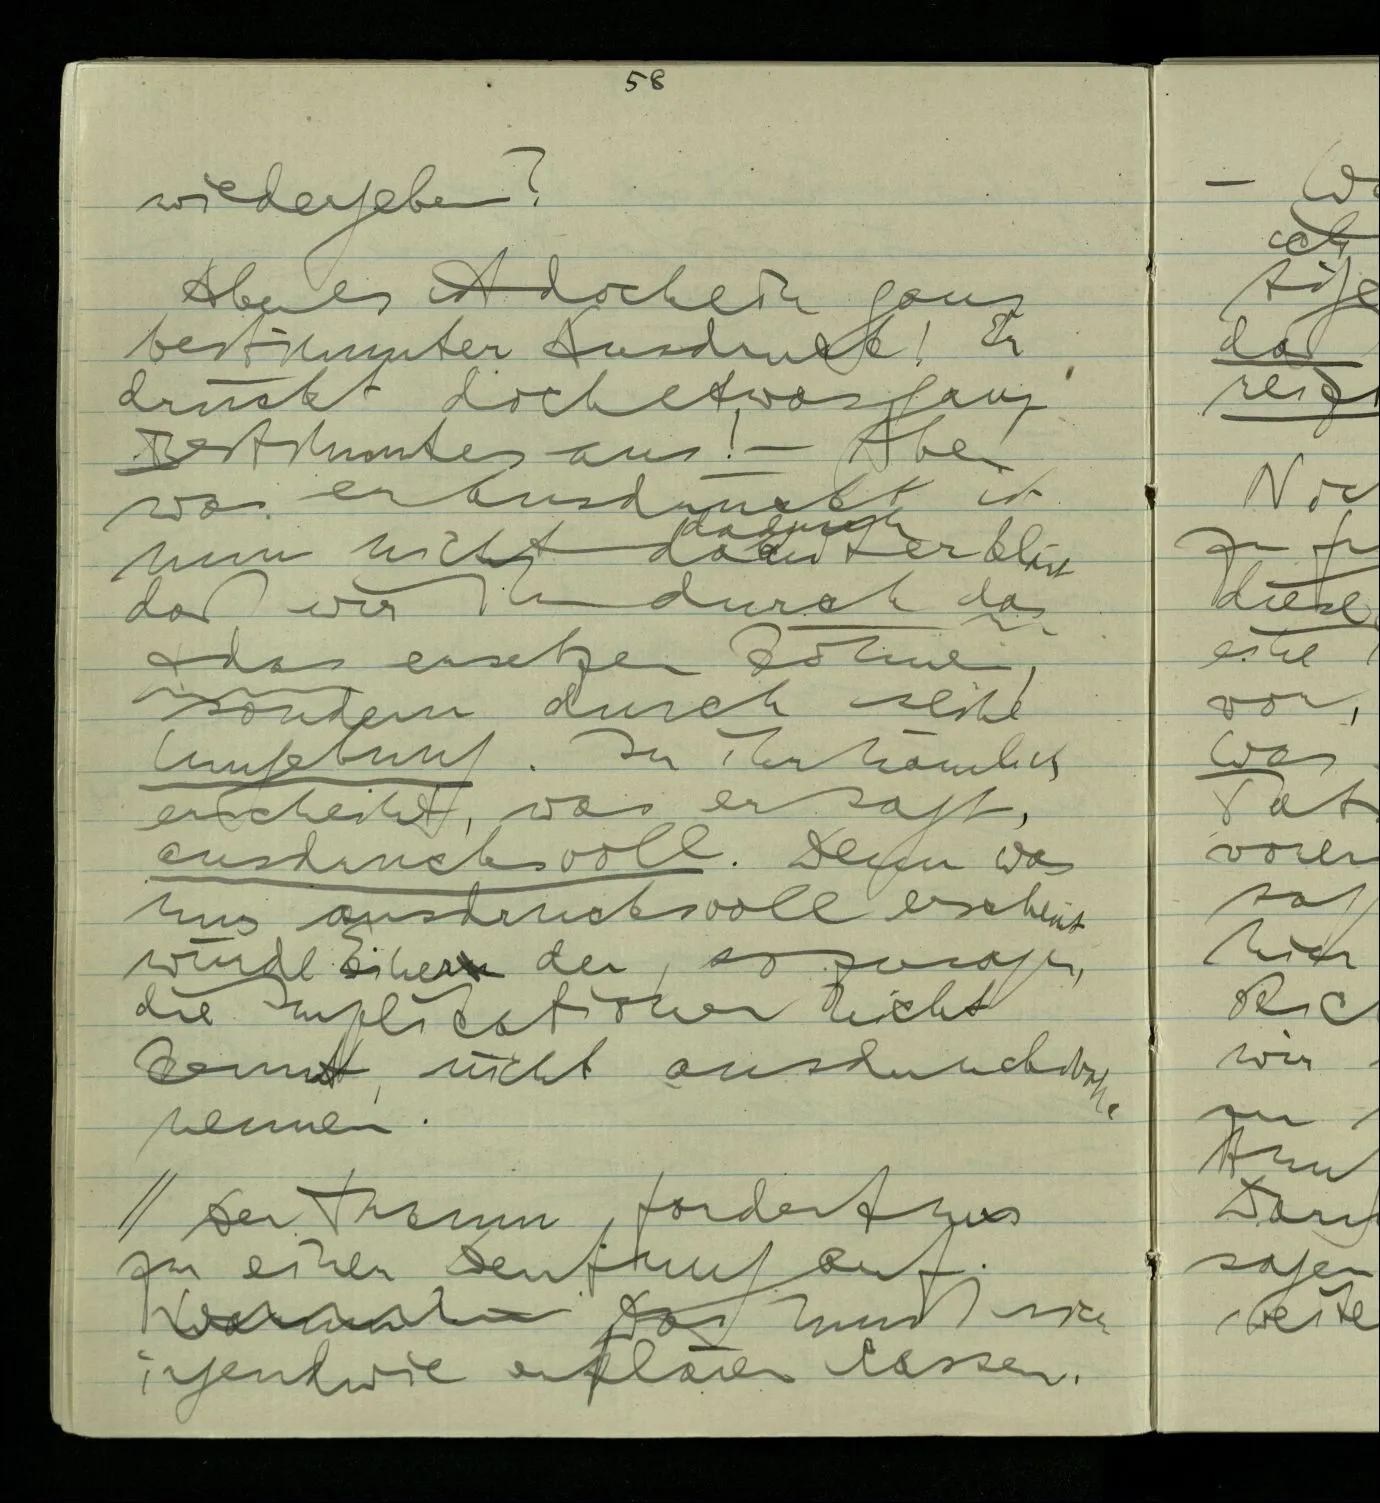 58
wiedergeben?
Aber es ist doch ein ganz
bestimmter Ausdruck! Er
drückt doch etwas ganz
Bestimmtes aus! – Aber
was er ausdrückt ist
nun nicht dadurch erklärt
daß wir ihn durch das
& das ersetzen können,
sondern durch seine
Umgebung. In ihr nämlich
erscheint, was er sagt,
ausdrucksvoll. Denn was
uns ausdrucksvoll erscheint
würde Einer der, sozusagen,
die Implicationen nicht
kennt, nicht ausdrucksvoll
nennen.
// Der Traum fordert uns
zu einer Deutung auf.
Das muß sich
irgendwie erklären lassen.
–
ich
das
Noch
zu
diese
eine
vor,
Was
Tat
hier
wir
zu
sagen